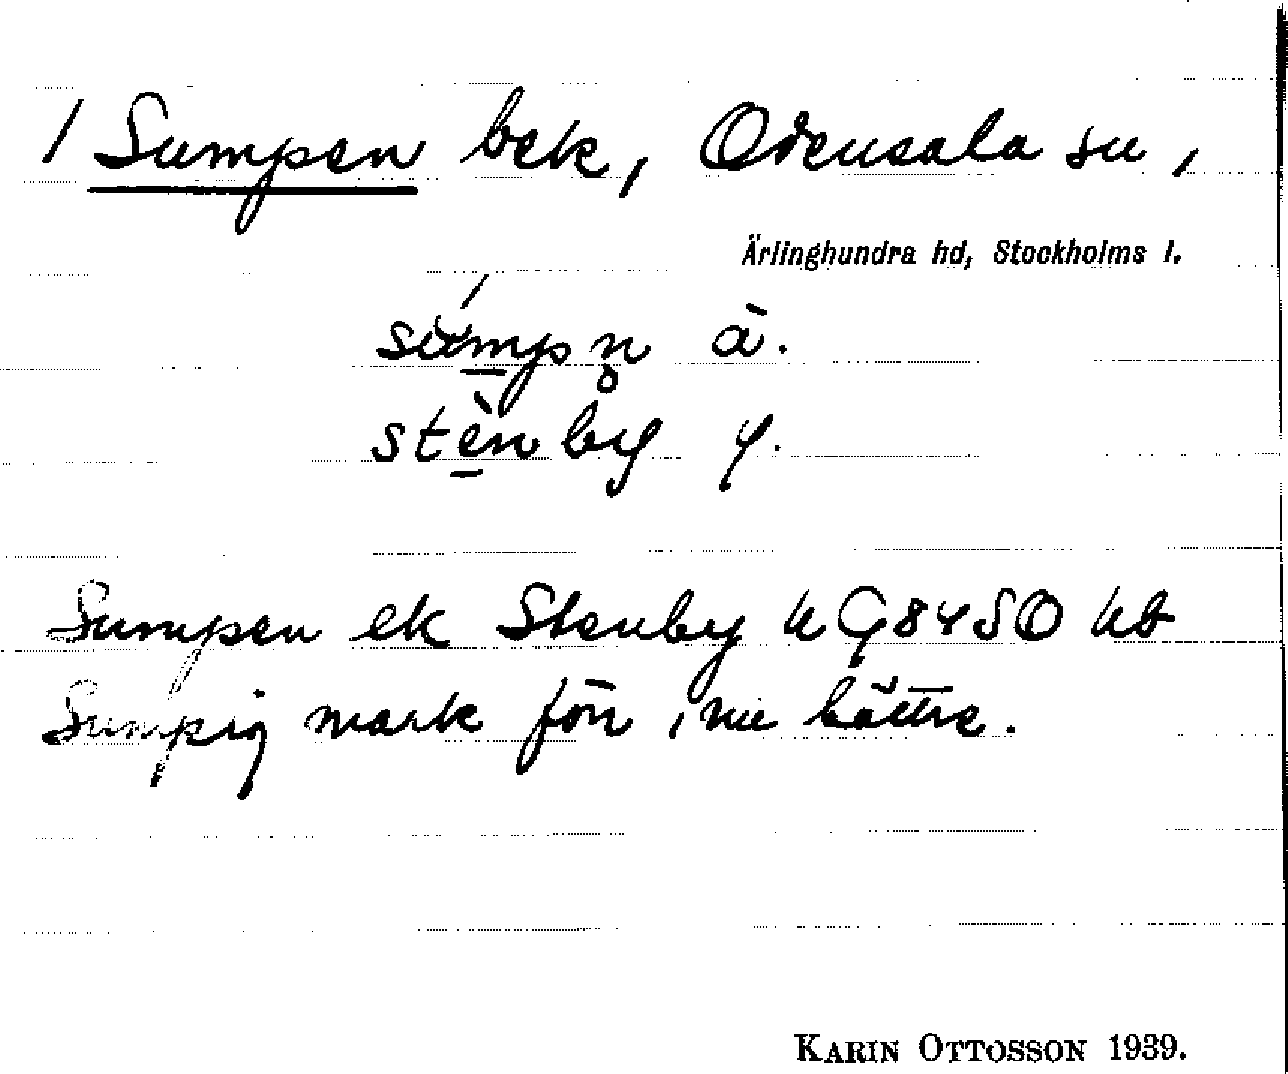 / Sumpen bek, Odensala sn,
Ärlinghundra hd, Stockholms l.
sumpn̥ ā.
stènby y.
Sumpen ek Stenby
Sumpig mark förr, nu bättre.
KARIN OTTOSSON 1939.